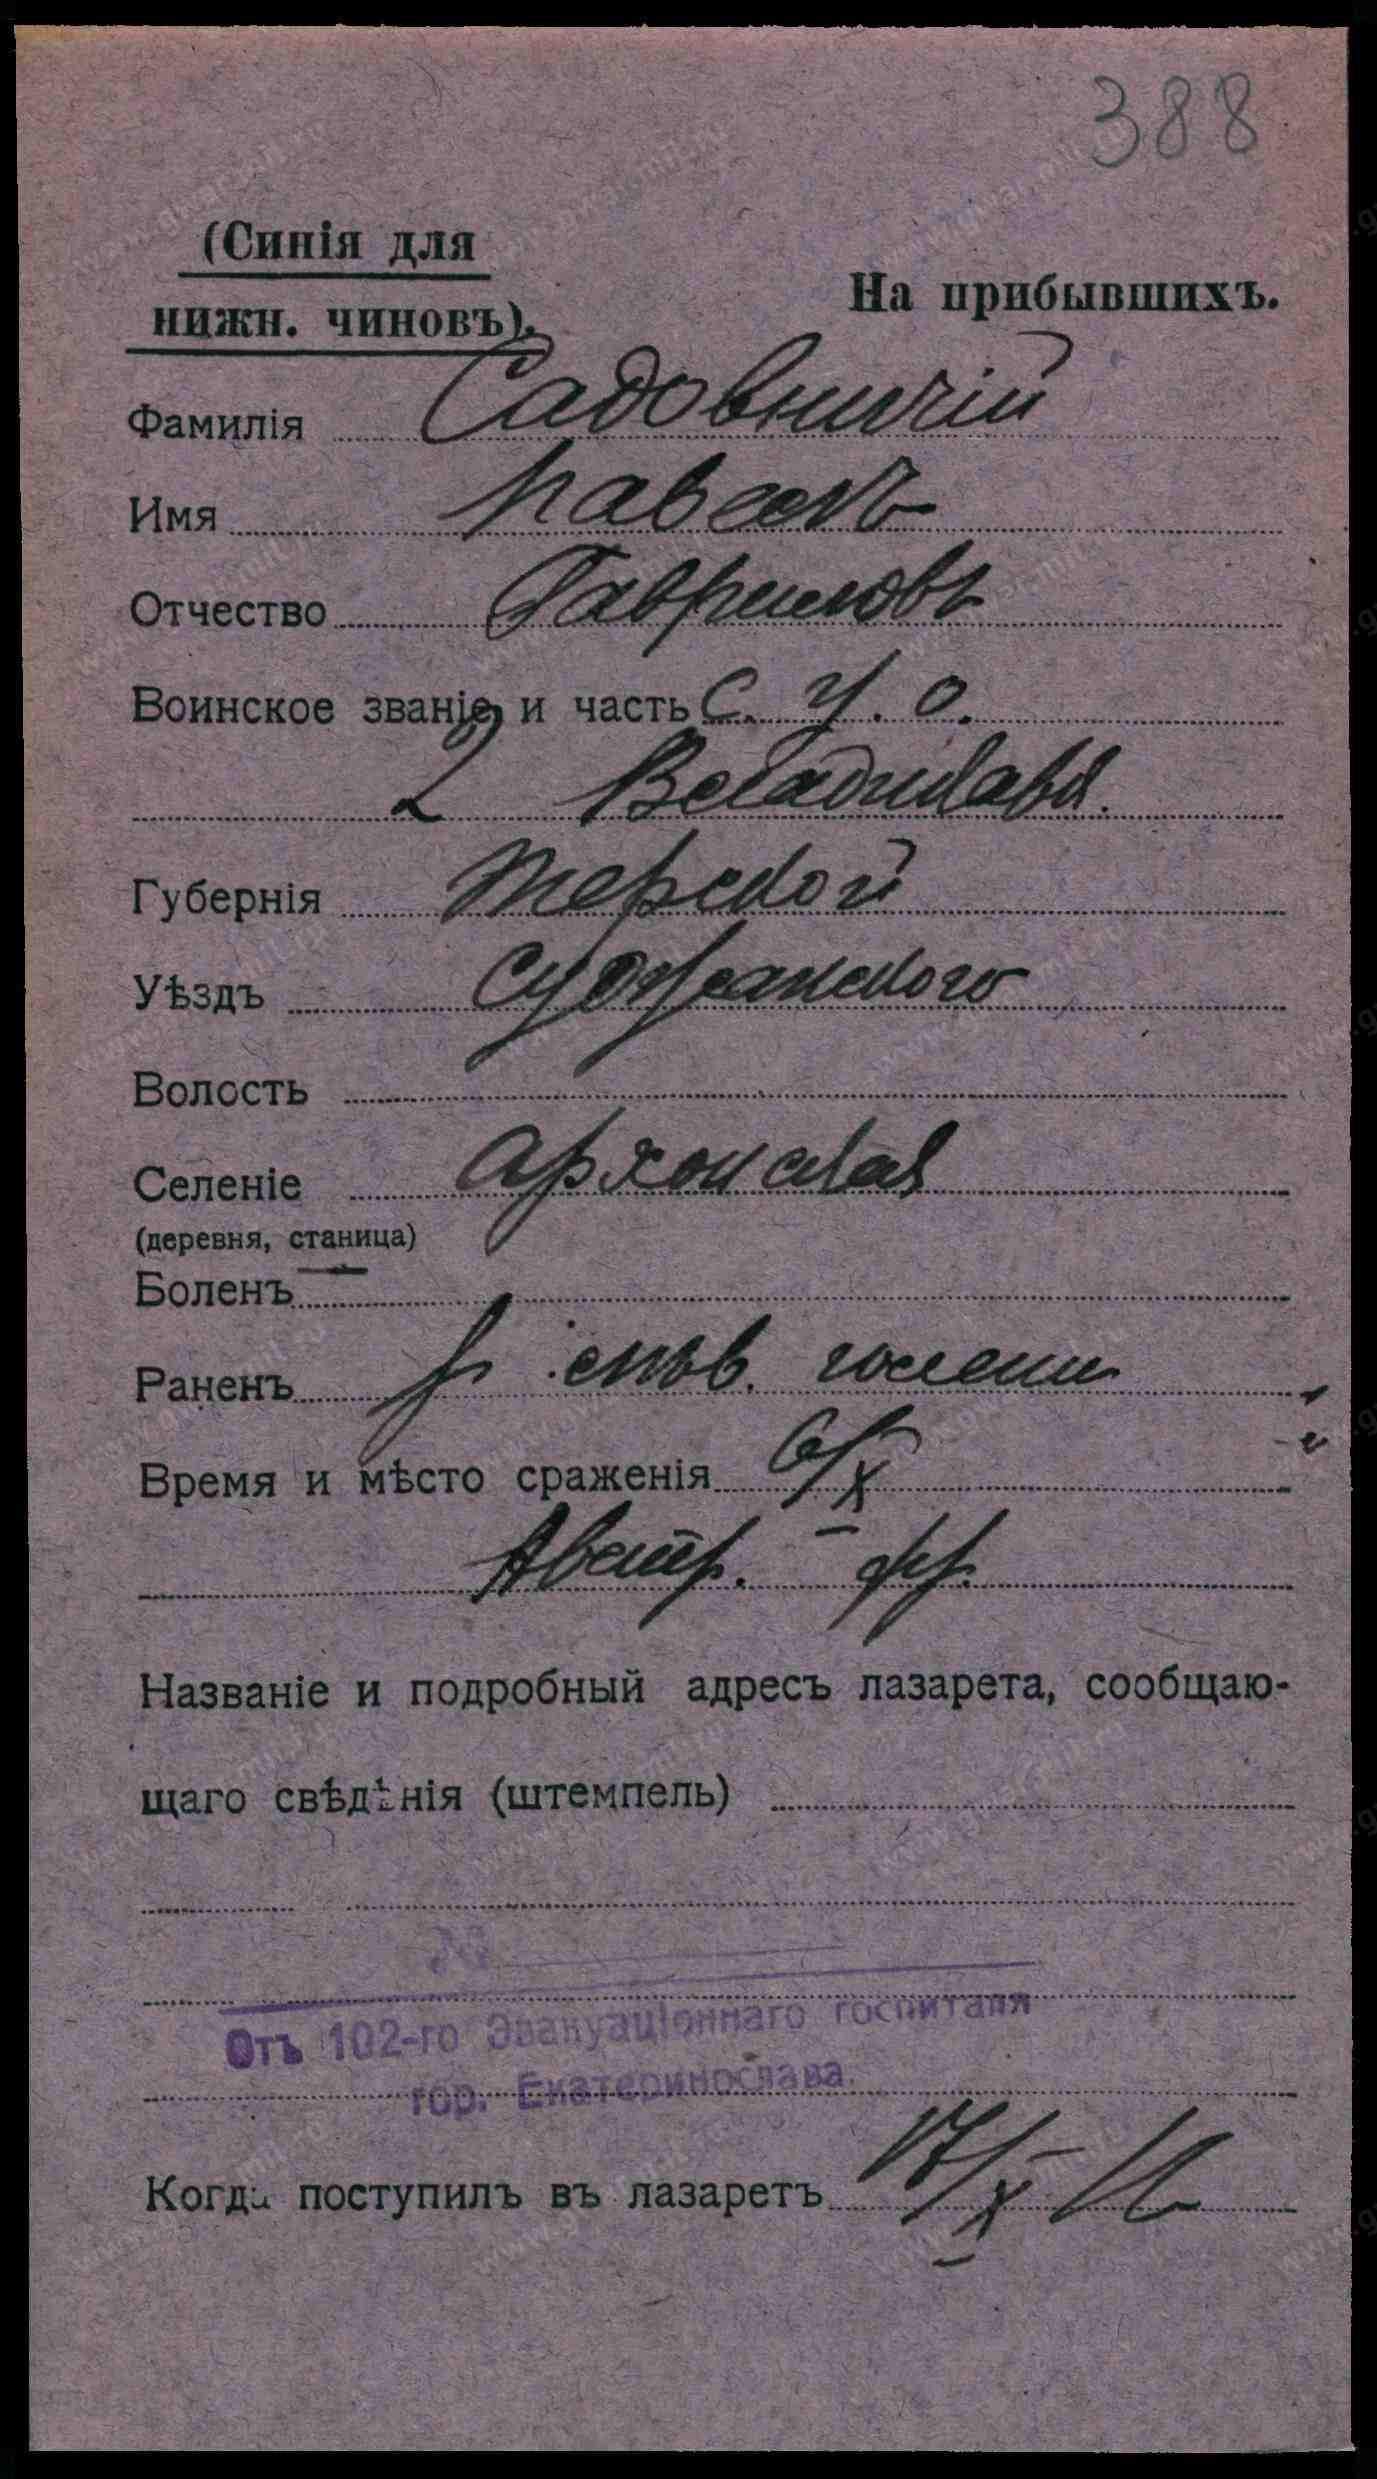 388
(Синія для
нижн. чиновъ).
На прибывшихъ.
Фамилія Садовничій
Имя Павелъ
Отчество Гавриловъ
Воинское званіе и часть С. У. О.
2 Владикавк.
Губернія Терской
Уѣздъ Сунженского
Волость
Селеніе Архонская
(деревня, станица)
Боленъ
Раненъ голени
Время и мѣсто сраженія 6/X
Австр. фр.
Названіе и подробный адресъ лазарета, сообщаю-
щаго свѣдѣнія (штемпель)
№
Отъ 102-го Эвакуаціоннаго госпиталя
гор. Екатеринослава.
Когда поступилъ въ лазаретъ 17/X 16